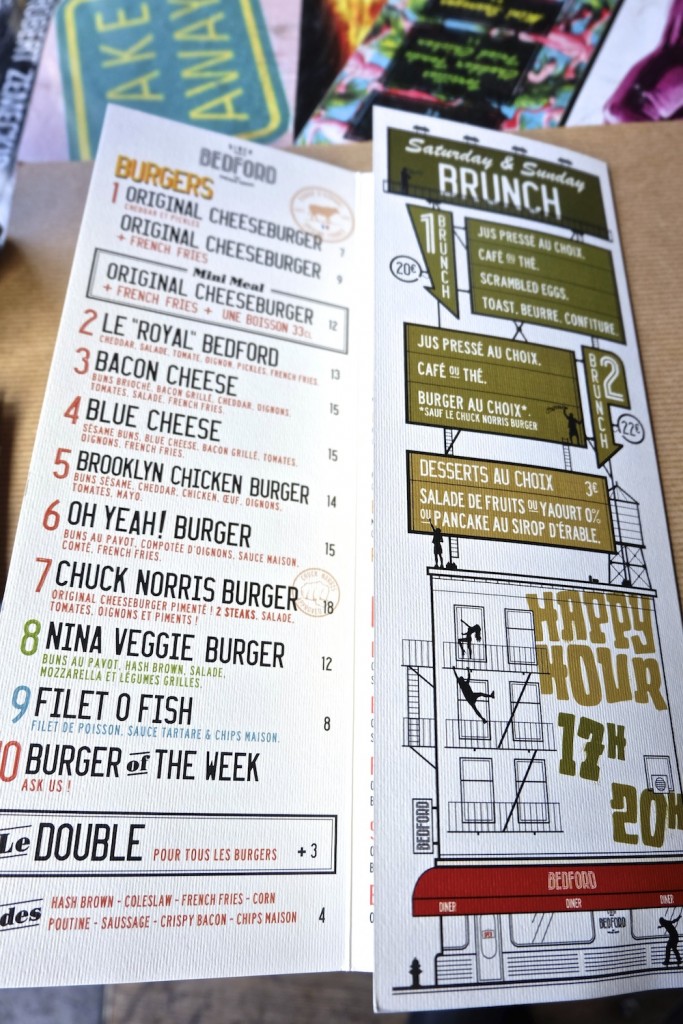 TAKE
AWAY
BEDFORD
BURGERS
1 ORIGINAL CHEESEBURGER 7
CHEDDAR ET PICKLES
ORIGINAL CHEESEBURGER 9
+ FRENCH FRIES
Mini Meal
ORIGINAL CHEESEBURGER 12
+ FRENCH FRIES + UNE BOISSON 33CL
2 LE "ROYAL" BEDFORD 13
CHEDDAR, SALADE, TOMATE, OIGNON, PICKLES, FRENCH FRIES.
3 BACON CHEESE 15
BUNS BRIOCHÉ, BACON GRILLÉ, CHEDDAR, OIGNONS,
TOMATES, SALADE, FRENCH FRIES.
4 BLUE CHEESE 15
SÉSAME BUNS, BLUE CHEESE, BACON GRILLÉ, TOMATES,
OIGNONS, FRENCH FRIES.
5 BROOKLYN CHICKEN BURGER 14
BUNS SÉSAME, CHEDDAR, CHICKEN, ŒUF, OIGNONS,
TOMATES, MAYO.
6 OH YEAH! BURGER 15
BUNS AU PAVOT, COMPOTÉE D'OIGNONS, SAUCE MAISON,
COMTÉ, FRENCH FRIES.
7 CHUCK NORRIS BURGER 18
ORIGINAL CHEESEBURGER PIMENTÉ ! 2 STEAKS, SALADE,
TOMATES, OIGNONS ET PIMENTS !
8 NINA VEGGIE BURGER 12
BUNS AU PAVOT, HASH BROWN, SALADE,
MOZZARELLA ET LÉGUMES GRILLÉS.
9 FILET O FISH 8
FILET DE POISSON, SAUCE TARTARE & CHIPS MAISON.
10 BURGER of THE WEEK
ASK US !
Le DOUBLE POUR TOUS LES BURGERS + 3
des HASH BROWN - COLESLAW - FRENCH FRIES - CORN
POUTINE - SAUSSAGE - CRISPY BACON - CHIPS MAISON 4
Saturday & Sunday
BRUNCH
1 BRUNCH
20€
JUS PRESSÉ AU CHOIX.
CAFÉ OU THÉ.
SCRAMBLED EGGS.
TOAST, BEURRE, CONFITURE.
JUS PRESSÉ AU CHOIX.
CAFÉ OU THÉ.
BURGER AU CHOIX*.
*SAUF LE CHUCK NORRIS BURGER
BRUNCH 2
22€
DESSERTS AU CHOIX 3€
SALADE DE FRUITS OU YAOURT 0%
OU PANCAKE AU SIROP D'ÉRABLE.
HAPPY
HOUR
17H
20H
BEDFORD
BEDFORD
DINER DINER DINER
BEDFORD